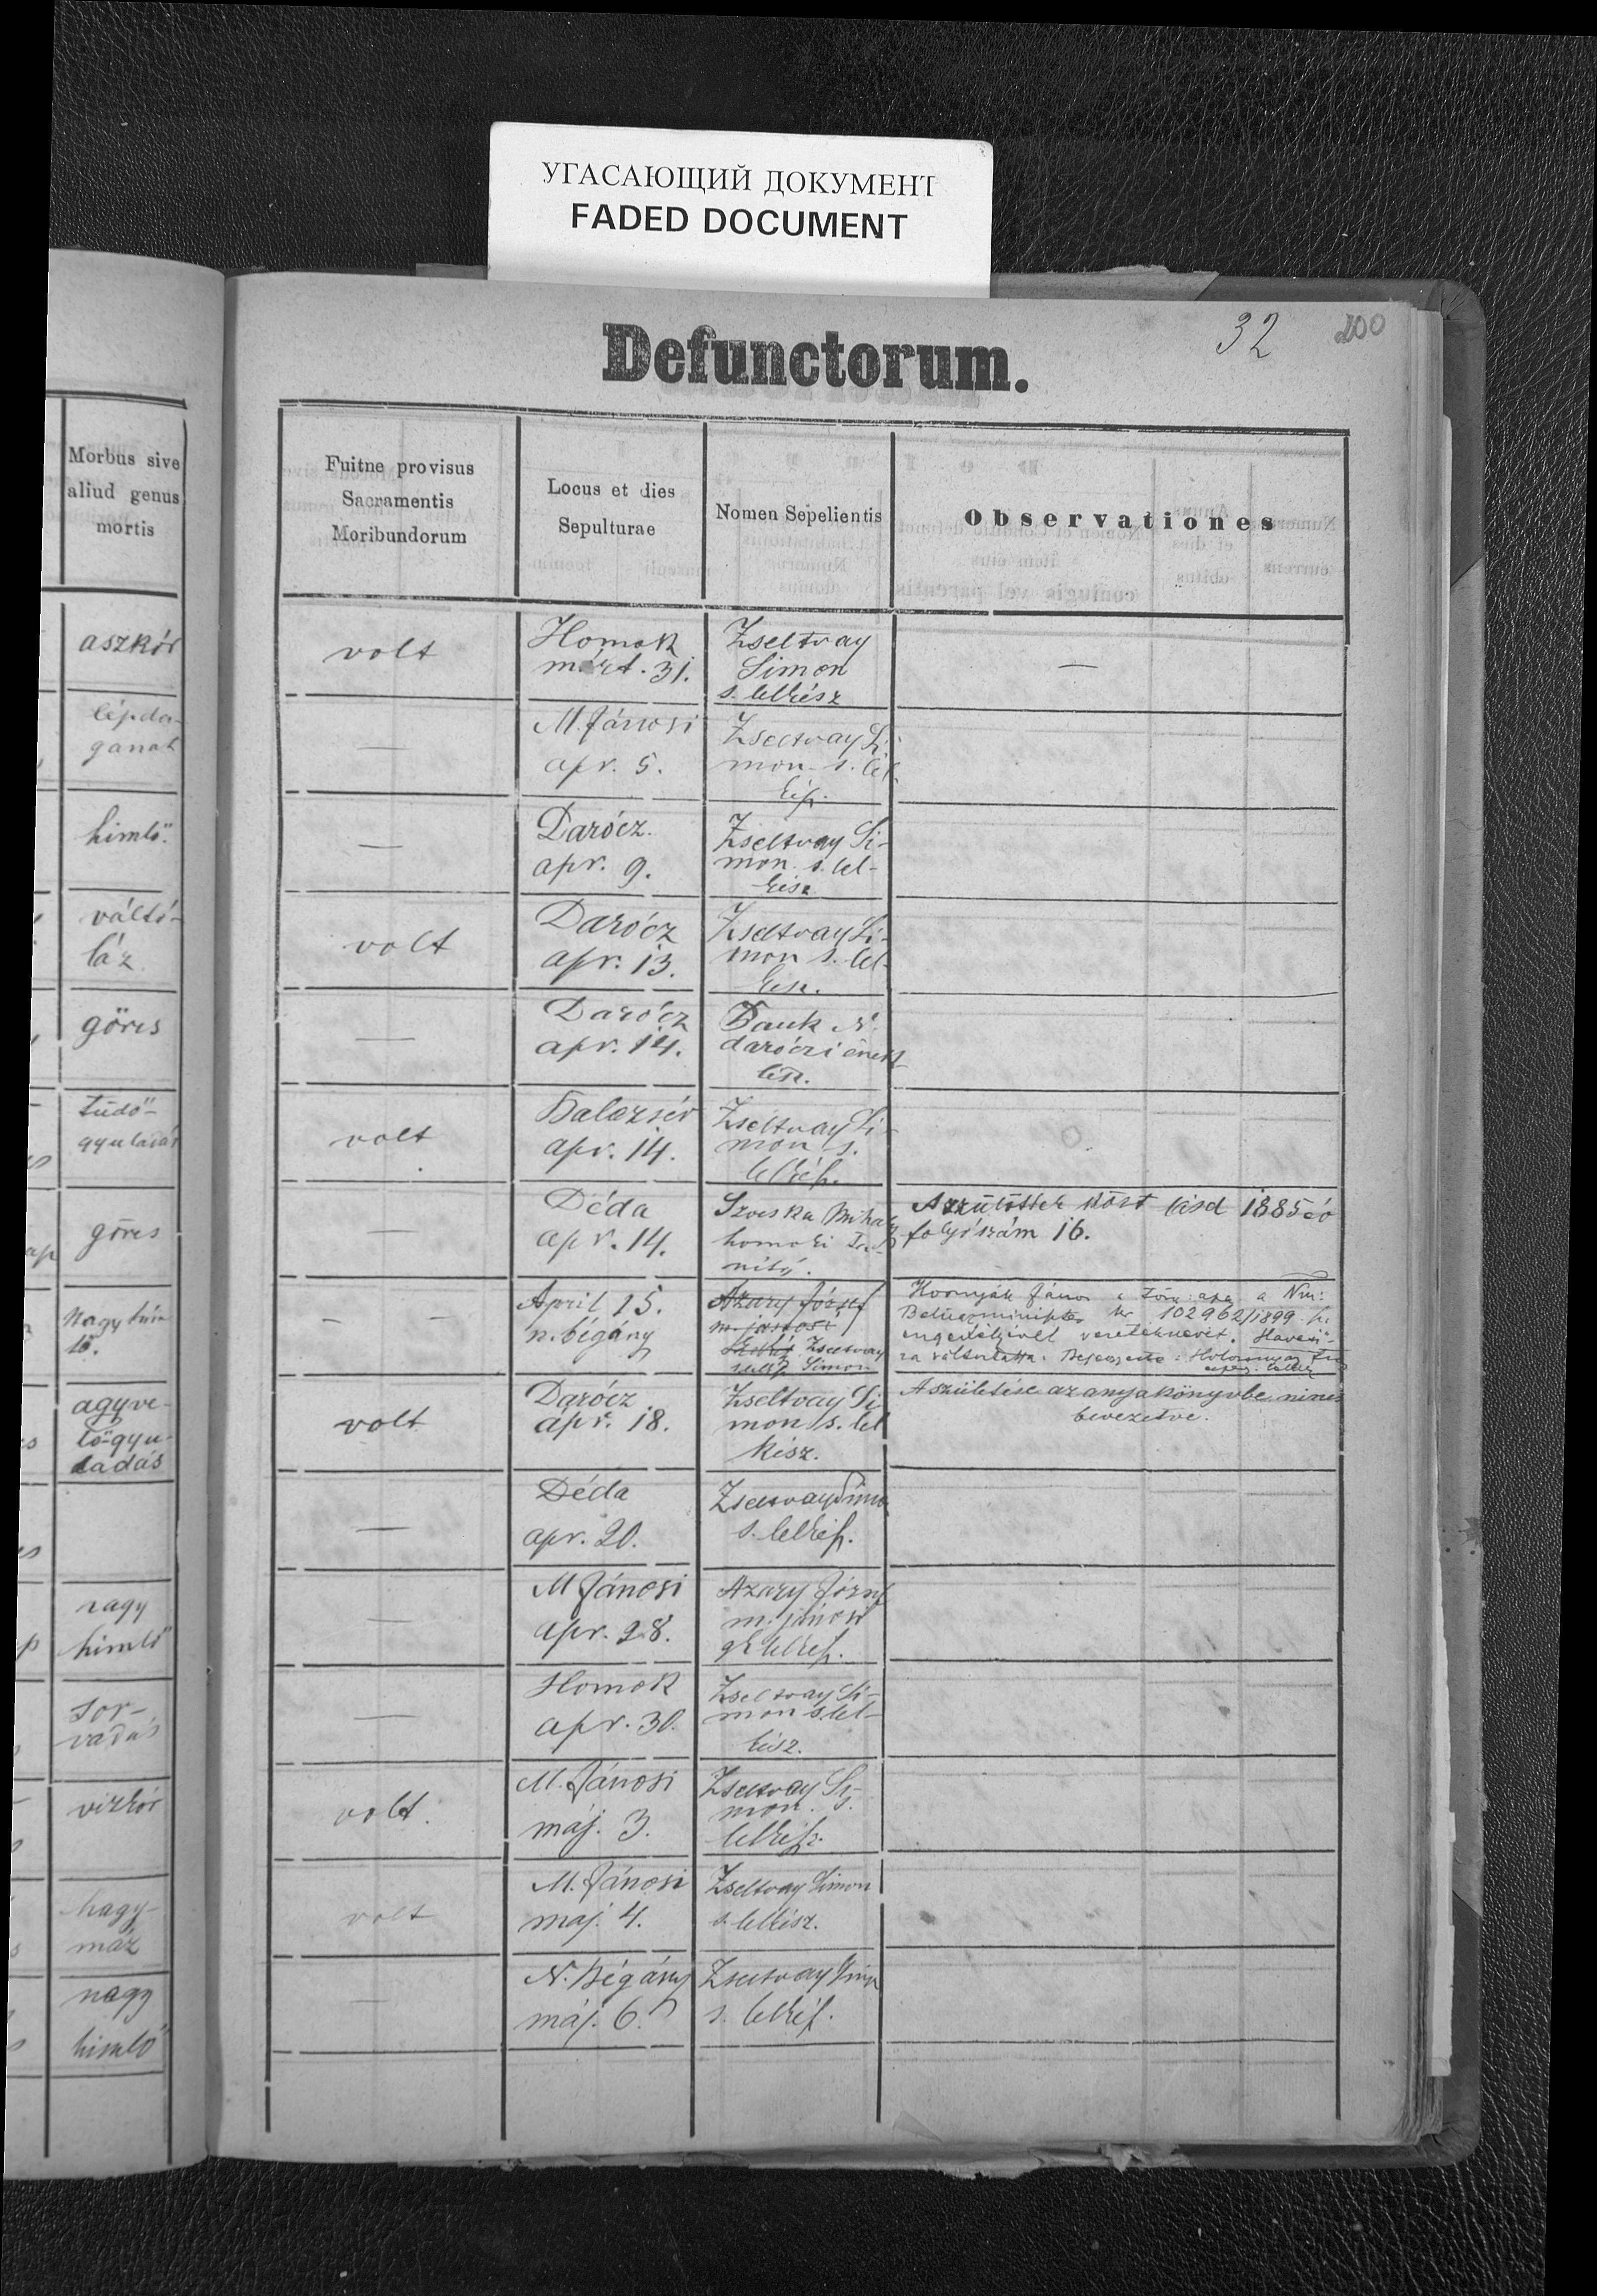 УГАСАЮЩИЙ ДОКУМЕНТ
FADED DOCUMENT
32
200
Defunctorum.
Morbus sive
aliud genus
mortis
Fuitne provisus
Sacramentis
Moribundorum
Locus et dies
Sepulturae
Nomen Sepelientis
Observationes
aszkór
volt
Homok
márt. 31.
Zseltvay
Simon
s. lelkész
—
lépda-
ganat
—
M. Jánosi
apr. 5.
Zseltvay Si
mon s. lel
kész.
himlő.
—
Darócz.
apr. 9.
Zseltvay Si-
mon s. lel-
kész
váltó-
láz
volt
Darócz
apr. 13.
Zseltvay Si-
mon s. lel-
kész.
görcs
—
Darócz
apr. 14.
N.
daróczi ének
tüdő-
gyuladás
volt
apr. 14.
Zseltvay Si-
mon s.
lelkész.
görcs
—
Déda
apr. 14.
Mihály
homoki
A szülöttek közt lásd 1885
folyószám 16.
Nagy him
lő.
- -
April 15.
n. bégány
Azary József
m. jánosi
Zseltvay
Simon
János a a Nm:
102962/1899
engedélyivel
agyve-
lő-gyu-
ladás
volt
Darócz
apr. 18.
Zseltvay Si
mon s. lel
kész.
A születése az anyakönyvbe nincs
bevezetve.
—
Déda
apr. 20.
Zseltvay Simon
s. lelkész.
nagy
himlő
—
M Jánosi
apr. 28.
Azary József
m. jánosi
gk lelkész.
sor-
vadás
—
Homok
apr. 30.
Zseltvay Si-
mon s. lel-
kész.
vizkór
volt.
M. Jánosi
máj. 3.
Zseltvay Si-
mon s.
lelkész.
hagy-
máz
volt
M. Jánosi
maj. 4.
Zseltvay Simon
s. lelkész.
nagy
himlő
—
N. Bégány
máj. 6.
Zseltvay Simon
s. lelkész.